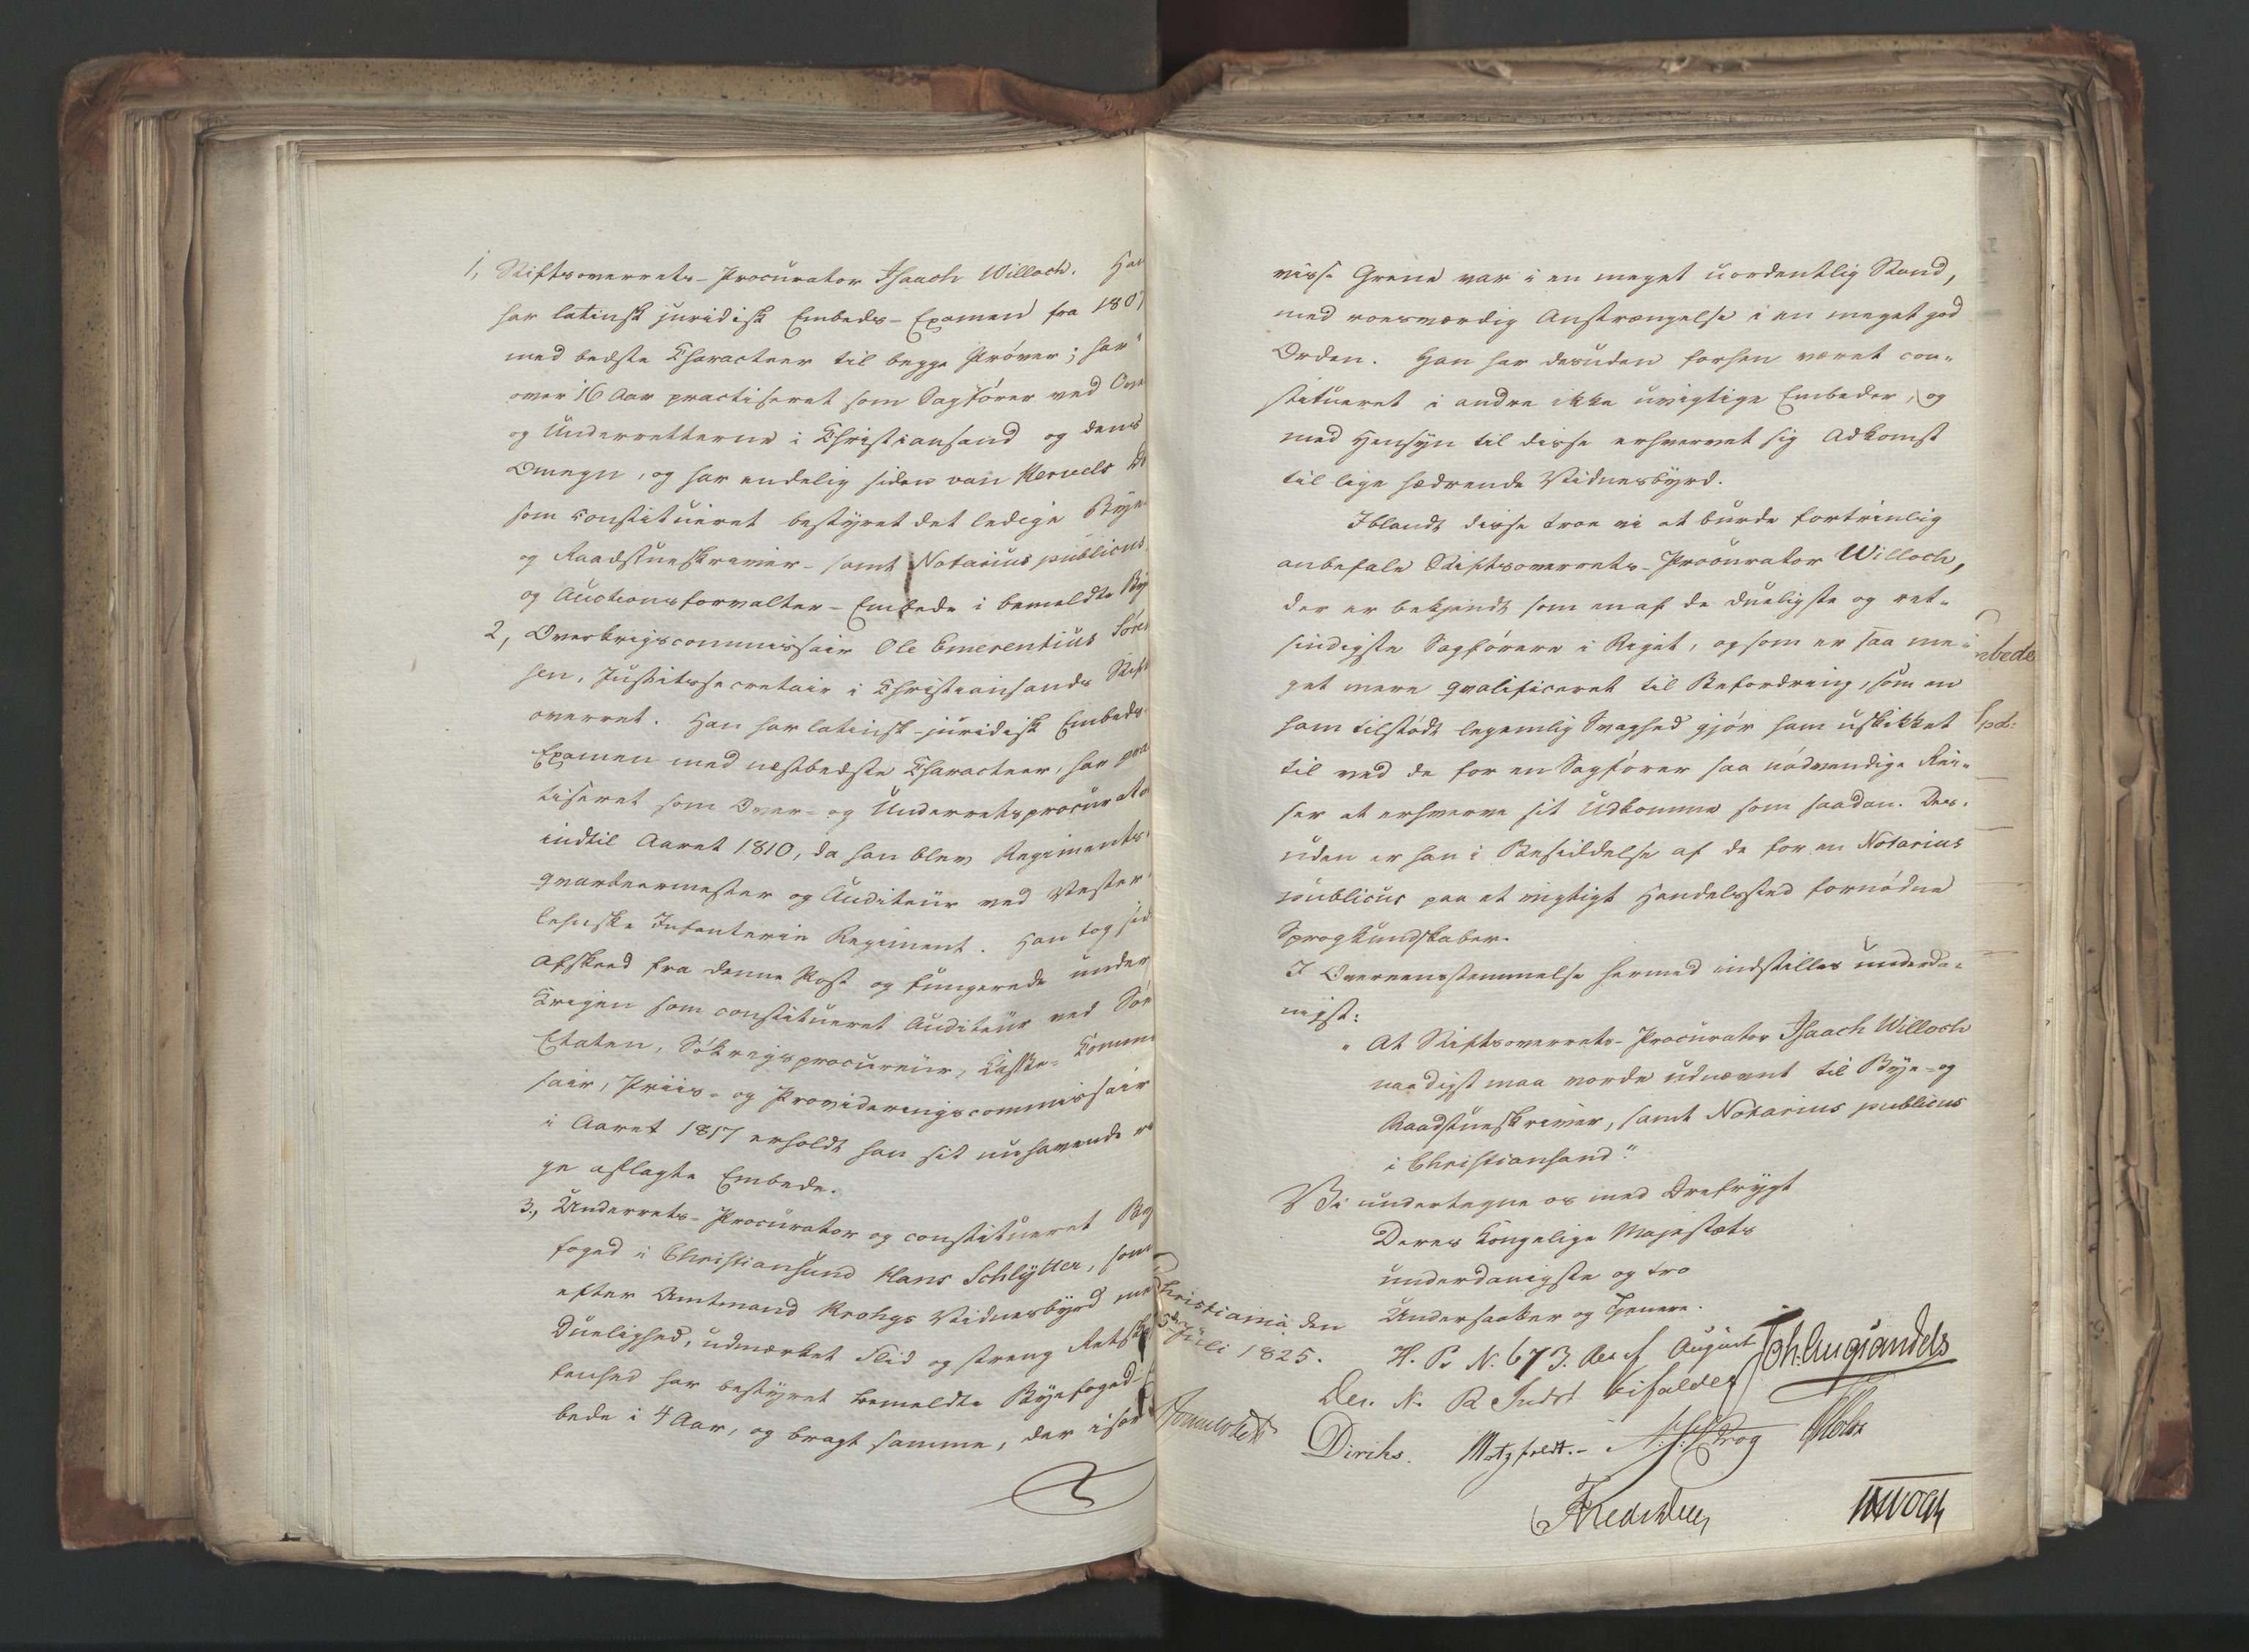 1, Stiftsoverrets-Procurator Isaach Willoch. Han
har latinsk juridisk Embeds-Examen fra 1807
med bedste Characteer til begge Prøver; har
over 16 Aar practiseret som Sagfører ved Over
og Underretterne i Christiansand og dens
Omegn, og har endelig siden van Kervels
som constitueret bestyret det ledige Bye
og Raadstueskriver- samt Notarius publicus
og Auctionsforvalter-Embede i bemeldte By
2, Overkrigscommissair Ole Emerentius Søren
sen, Justitssecretair i Christiansands Stift
overret. Han har latinsk-juridisk Embeds-
Examen med næstbedste Characteer, har prac
tiseret som Over- og Underretsprocurator
indtil Aaret 1810, da han blev Regiments-
qvarteermester og Auditeur ved Vester
lehnske Infanterie Regiment. Han tog sin
Afskeed fra denne Post og fungerede under
Krigen som constitueret Auditeur ved Søe
Etaten, Søkrigsprocureur, Commis
sair, Priis- og Provideringscommissair
i Aaret 1817 erholdt han sit nuhavende
ge aflagte Embede.
3., Underrets-Procurator og constitueret By
foged i Christiansund Hans Schlytter, som
efter Amtmand Krohgs Vidnesbyrd med
Duelighed, udmærket Flid og streng Retska
fenhed har bestyret bemeldte Byefoged
bede i 4 Aar, og bragt samme, der især i
visse Grene var i en meget uordentlig Stand,
med roesværdig Anstrængelse i en meget god
Orden. Han har desuden forhen været con-
stitueret i andre ikke uvigtige Embeder, og
med Hensyn til disse erhvervet sig Adkomst
til lige hædrende Vidnesbyrd.
Iblandt disse troe vi at burde fortrinlig
anbefale Stiftsoverrets-Procurator Willoch,
der er bekjendt som en af de dueligste og ret-
sindigste Sagførere i Riget, og som er saa me-
get mere qvalificeret til Befordring, som en
ham tilstødt legemlig Svaghed gjør ham uskikket
til ved de for en Sagfører saa nødvendige Rei-
ser at erhverve sit Udkomme som saadan. Des-
uden er han i Besiddelse af de for en Notarius
publicus paa et vigtigt Handelssted fornødne
Sprogkundskaber.
I Overeensstemmelse hermed indstilles underda-
nigst:
"At Stiftsoverrets-Procurator Isaach Willoch
naadigst maa vorde udnævnt til Bye- og
Raadstueskriver, samt Notarius publicus
i Christiansand."
Vi undertegne os med Ærefrygt
Deres Kongelige Majestæts
underdanigste og tro
Undersaatter og Tjenere.
Christiania den
5te Juli 1825.
H. P. N. 673. August Joh. Aug. Sandels
Sommerhielm
Diriks. Motzfeldt. Krog Holst